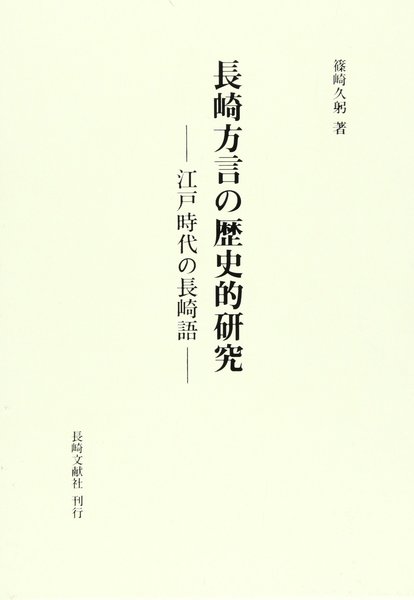 篠崎久躬 著
長崎方言の歴史的研究
―江戸時代の長崎語―
長崎文献社 刊行